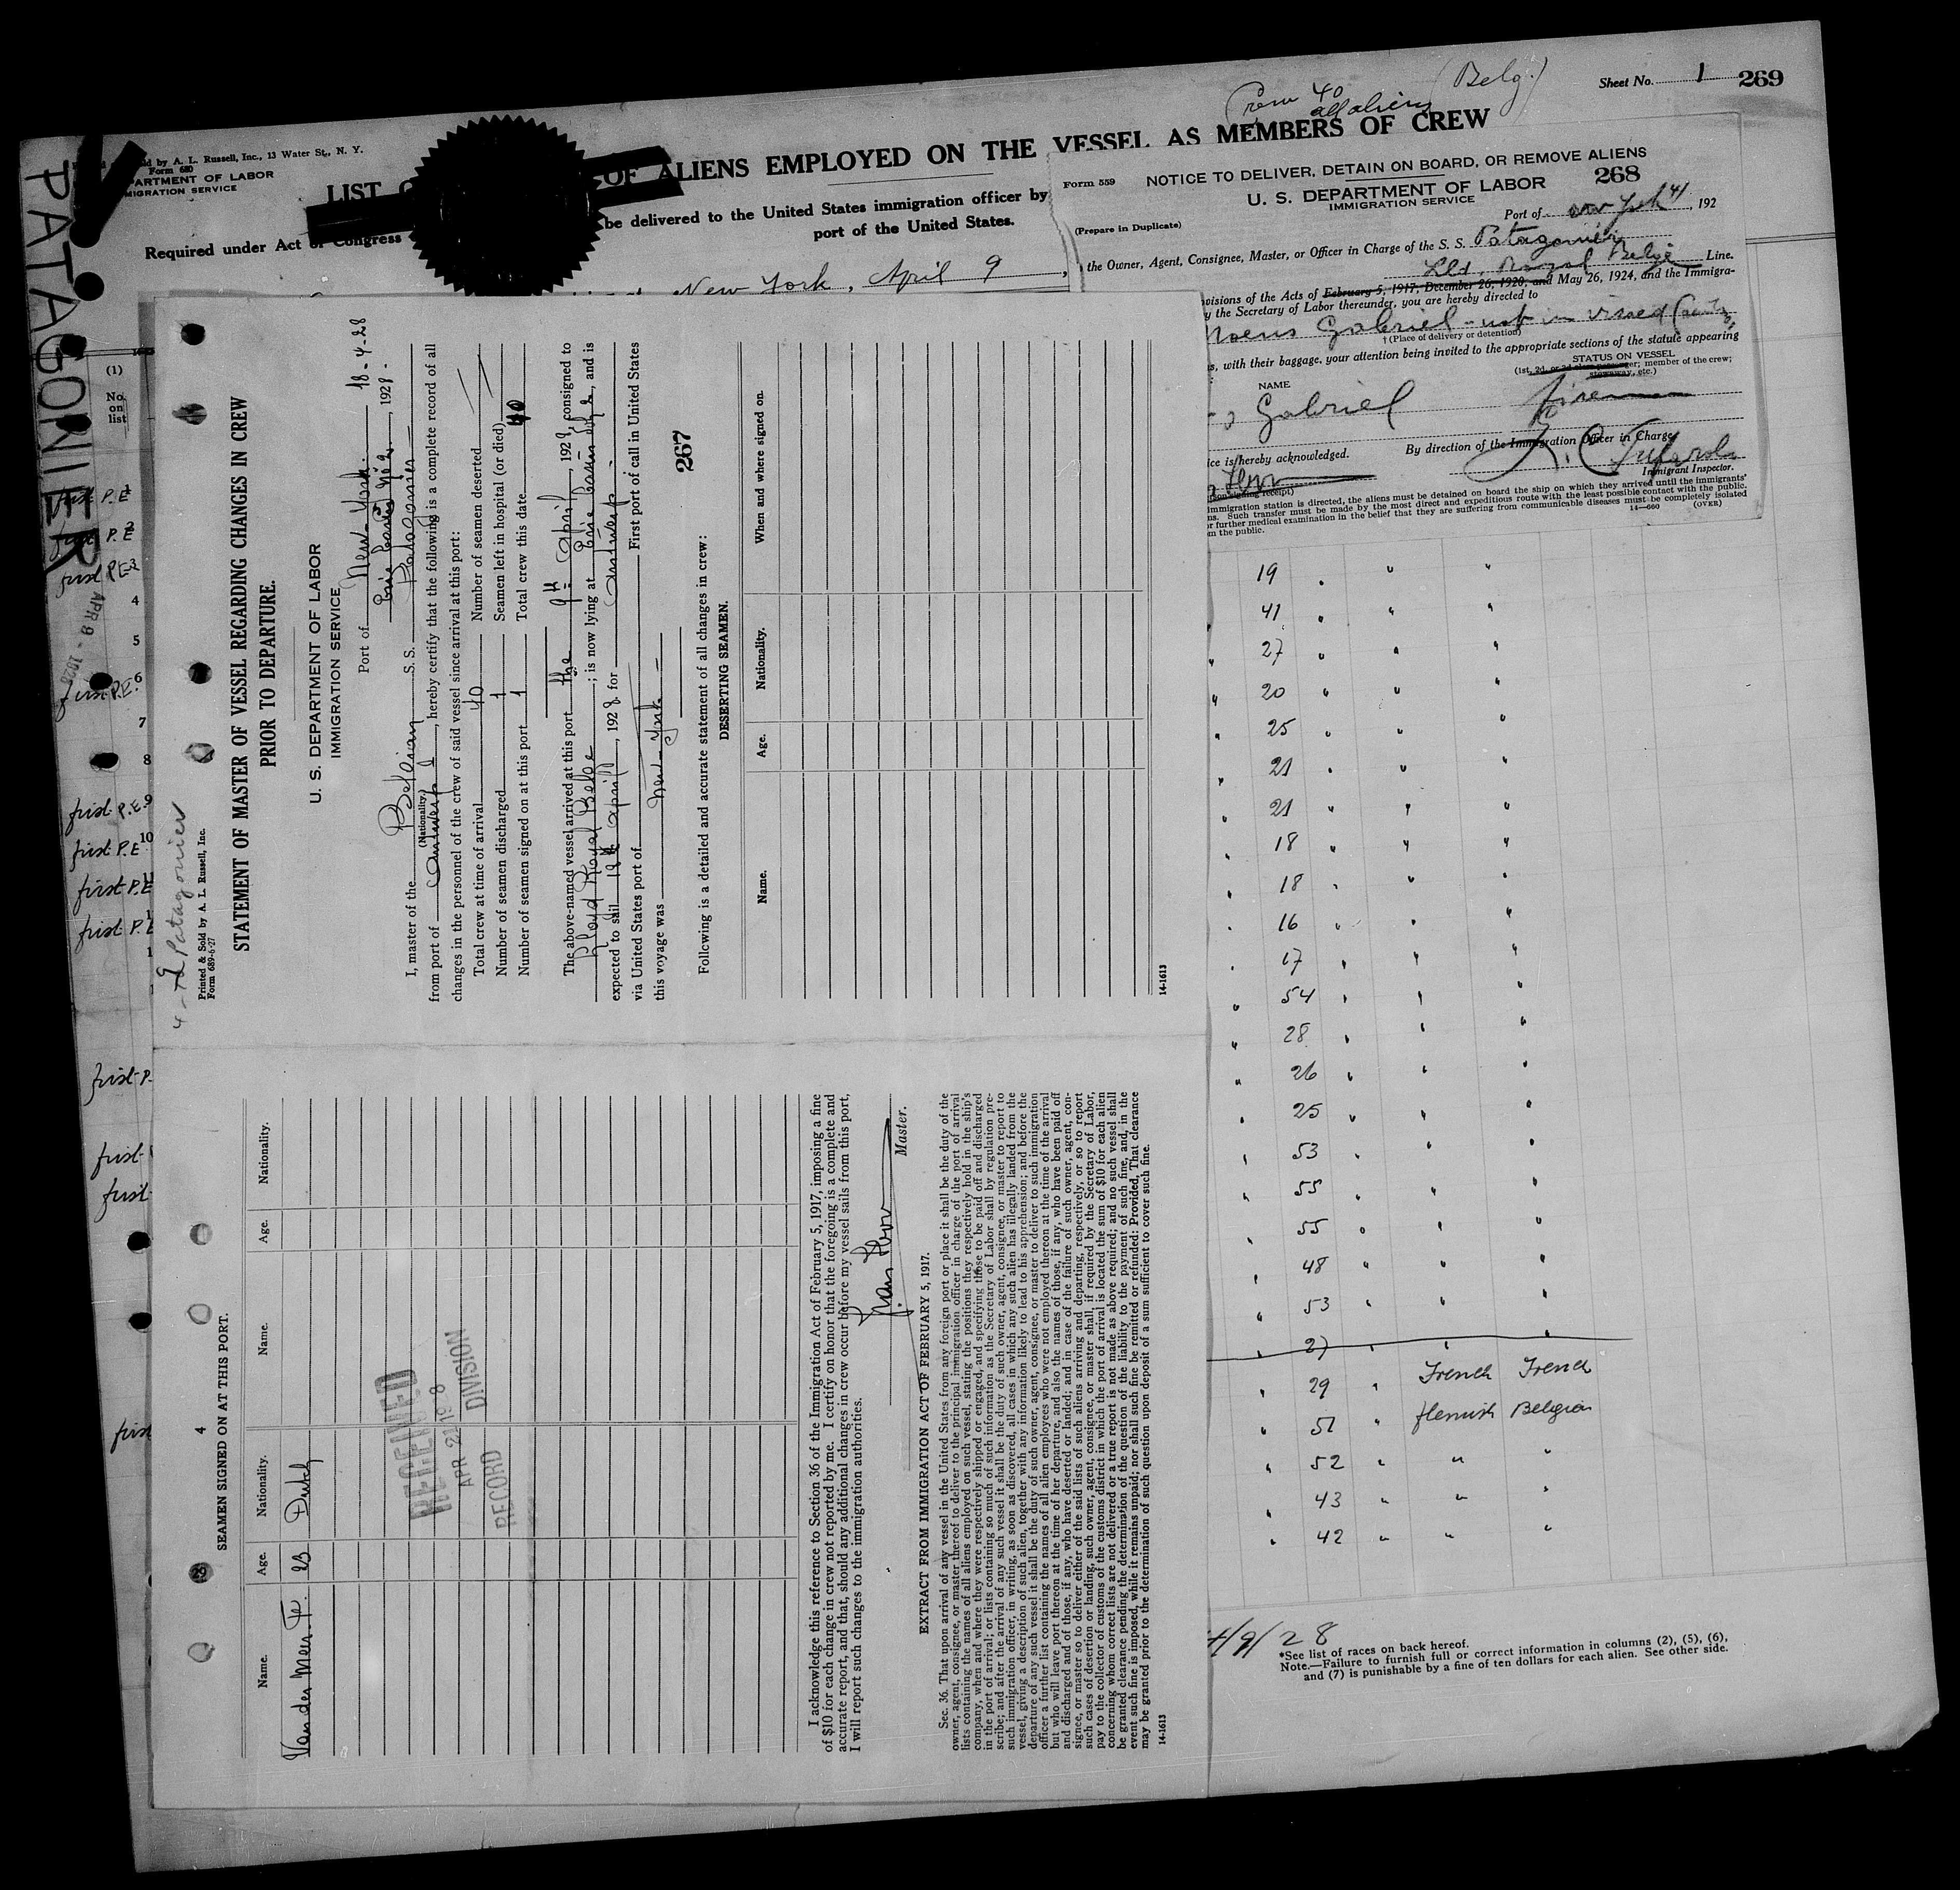 Sheet No. 1 269
(Belg.)
Crew 40
all aliens
PATAGONIER
by A. L. Russell, Inc., 13 Water St., N. Y.
Form 680
PARTMENT OF LABOR
MIGRATION SERVICE
LIST OF ALIENS EMPLOYED ON THE VESSEL AS MEMBERS OF CREW
Required under Act of Congress
be delivered to the United States immigration officer by
port of the United States.
New York, April 9,
Form 559
NOTICE TO DELIVER, DETAIN ON BOARD, OR REMOVE ALIENS
268
U. S. DEPARTMENT OF LABOR
IMMIGRATION SERVICE
(Prepare in Duplicate)
Port of New York 4/ , 192
the Owner, Agent, Consignee, Master, or Officer in Charge of the S. S. Patagonier
Lld. Royal Belge Line.
ovisions of the Acts of February 5, 1917, December 26, 1920, and May 26, 1924, and the Immigra-
y the Secretary of Labor thereunder, you are hereby directed to
Moens Gabriel - not in visaed
† (Place of delivery or detention)
s, with their baggage, your attention being invited to the appropriate sections of the statute appearing
STATUS ON VESSEL
(1st, 2d, or 3d class passenger; member of the crew; stowaway, etc.)
NAME
Gabriel
fireman
By direction of the Immigration Officer in Charge
ice is hereby acknowledged.
Immigrant Inspector.
on signing receipt)
immigration station is directed, the aliens must be detained on board the ship on which they arrived until the immigrants'
ns. Such transfer must be made by the most direct and expeditious route with the least possible contact with the public.
r further medical examination in the belief that they are suffering from communicable diseases must be completely isolated
m the public.
14—660 (OVER)
(1)
No. on list
first P.E 1
first P.E 2
first P.E 3
4
APR 9 - 1928
5
first P.E. 6
7
8
first P.E. 9
first P.E 10
first P.E
first P.E
first P.
first
first
first
19 " "
41 " "
27 " "
20 " "
25 " "
21 " "
21 " "
18 " "
18 " "
16 " "
17 " "
54 " "
28 " "
26 " "
25 " "
53 " "
55 " "
55 " "
48 " "
53 " "
27 " "
29 " French French
51 " flemish Belgian
52 " " "
43 " " "
42 " " "
4/9/28
*See list of races on back hereof.
Note.—Failure to furnish full or correct information in columns (2), (5), (6),
and (7) is punishable by a fine of ten dollars for each alien. See other side.
Patagonier
Printed & Sold by A. L. Russell, Inc.
Form 689-6-27
STATEMENT OF MASTER OF VESSEL REGARDING CHANGES IN CREW
PRIOR TO DEPARTURE.
U. S. DEPARTMENT OF LABOR
IMMIGRATION SERVICE
Port of New-York. 18-4-28
Erie Basin , 1928.
I, master of the Belgian S. S. Patagonier
(Nationality.)
from port of Antwerp , hereby certify that the following is a complete record of all
changes in the personnel of the crew of said vessel since arrival at this port:
Total crew at time of arrival 40 Number of seamen deserted
Number of seamen discharged 1 Seamen left in hospital (or died)
Number of seamen signed on at this port 1 Total crew this date 40
The above-named vessel arrived at this port the 9th April , 1928, consigned to
Lloyd Royal Belge ; is now lying at Erie Basin , and is
expected to sail 18th April , 1928 for Antwerp
via United States port of First port of call in United States
this voyage was New-York
267
Following is a detailed and accurate statement of all changes in crew:
DESERTING SEAMEN.
Name. Age. Nationality. When and where signed on.
14-1613
29 4
SEAMEN SIGNED ON AT THIS PORT.
Name. Age. Nationality. Name. Age. Nationality.
Van der Meer. 23 Dutch
RECEIVED
APR 21 1928
RECORD DIVISION
I acknowledge this reference to Section 36 of the Immigration Act of February 5, 1917, imposing a fine
of $10 for each change in crew not reported by me. I certify on honor that the foregoing is a complete and
accurate report, and that, should any additional changes in crew occur before my vessel sails from this port,
I will report such changes to the immigration authorities.
Master.
EXTRACT FROM IMMIGRATION ACT OF FEBRUARY 5, 1917.
Sec. 36. That upon arrival of any vessel in the United States from any foreign port or place it shall be the duty of the
owner, agent, consignee, or master thereof to deliver to the principal immigration officer in charge of the port of arrival
lists containing the names of all aliens employed on such vessel, stating the positions they respectively hold in the ship's
company, when and where they were respectively shipped or engaged, and specifying those to be paid off and discharged
in the port of arrival; or lists containing so much of such information as the Secretary of Labor shall by regulation pre-
scribe; and after the arrival of any such vessel it shall be the duty of such owner, agent, consignee, or master to report to
such immigration officer, in writing, as soon as discovered, all cases in which any such alien has illegally landed from the
vessel, giving a description of such alien, together with any information likely to lead to his apprehension; and before the
departure of any such vessel it shall be the duty of such owner, agent, consignee, or master to deliver to such immigration
officer a further list containing the names of all alien employees who were not employed thereon at the time of the arrival
but who will leave port thereon at the time of her departure, and also the names of those, if any, who have been paid off
and discharged and of those, if any, who have deserted or landed; and in case of the failure of such owner, agent, con-
signee, or master so to deliver either of the said lists of such aliens arriving and departing, respectively, or so to report
such cases of desertion or landing, such owner, agent, consignee, or master shall, if required by the Secretary of Labor,
pay to the collector of customs of the customs district in which the port of arrival is located the sum of $10 for each alien
concerning whom correct lists are not delivered or a true report is not made as above required; and no such vessel shall
be granted clearance pending the determination of the question of the liability to the payment of such fine, and, in the
event such fine is imposed, while it remains unpaid; nor shall such fine be remitted or refunded: Provided, That clearance
may be granted prior to the determination of such question upon deposit of a sum sufficient to cover such fine.
14-1613